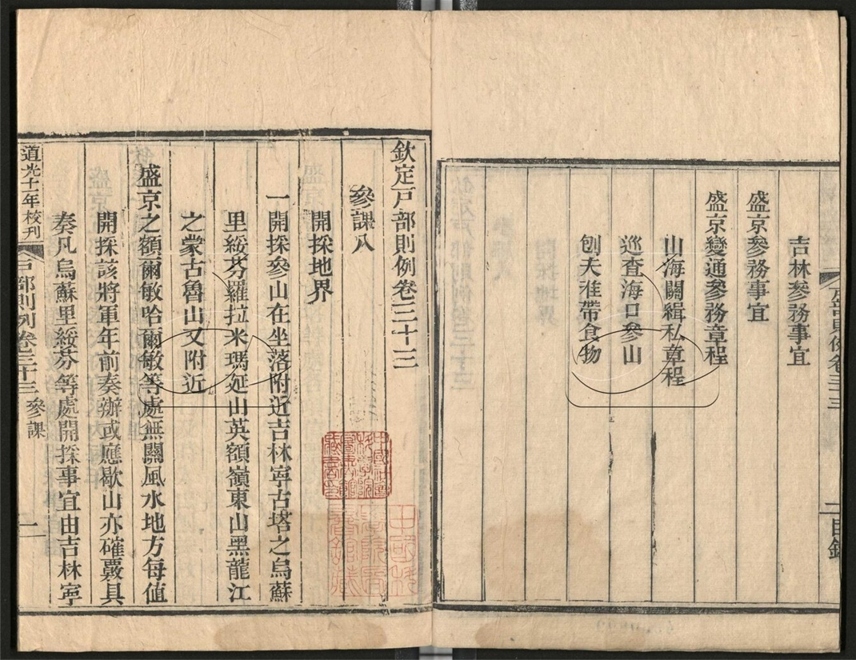 吉林參務事宜
盛京參務事宜
盛京變通參務章程
山海關緝私章程
巡查海口參山
刨夫准帶食物
欽定戶部則例卷三十三
參課八
開採地界
一開採參山在坐落附近吉林寧古塔之烏蘇
里綏芬羅拉米瑪延山英額嶺東山黑龍江
之蒙古魯山又附近
盛京之額爾敏哈爾敏等處無關風水地方每值
開採該將軍年前奏辦或應歇山亦確覈具
奏凡烏蘇里綏芬等處開採事宜由吉林寧
道光十一年校刊
戶部則例卷三十三 參課
一